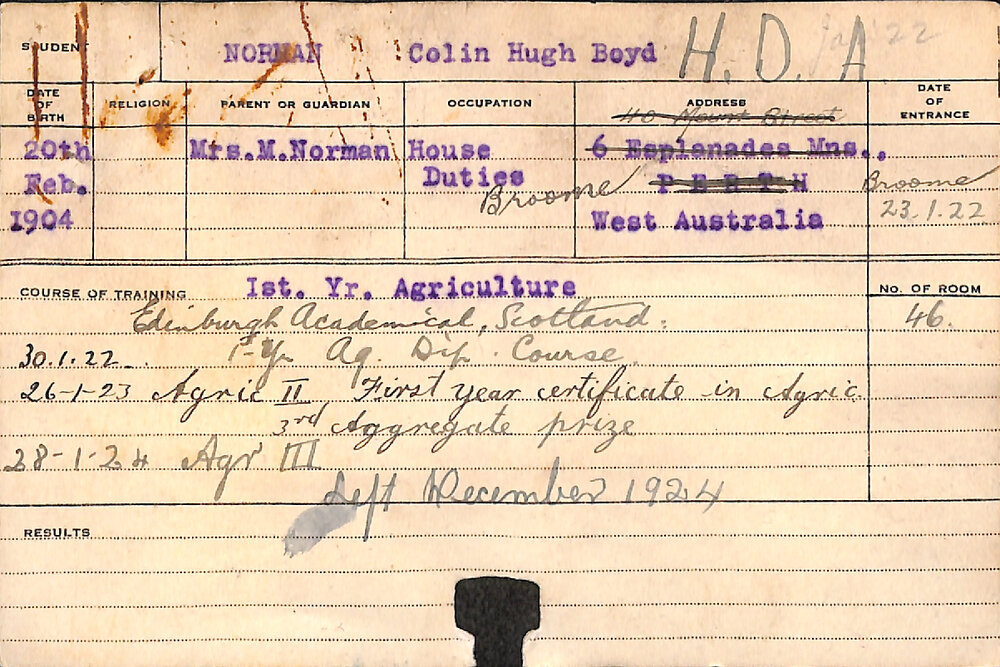 STUDENT NORMAN Colin Hugh Boyd H.D.A Jan '22
DATE OF BIRTH RELIGION PARENT OR GUARDIAN OCCUPATION ADDRESS DATE OF ENTRANCE
40 Mount Street
20th Mrs.M.Norman House 6 Esplanades Mns.,
Feb. Duties Broome PERTH Broome
1904 West Australia 23.1.22
COURSE OF TRAINING Ist. Yr. Agriculture No. OF ROOM
Edinburgh Academical, Scotland. 46.
30.1.22. 1st Yr Ag. Dip. Course.
26-1-23 Agric II First year certificate in Agric.
3rd Aggregate prize
28-1-24 Agr III
Left December 1924
RESULTS